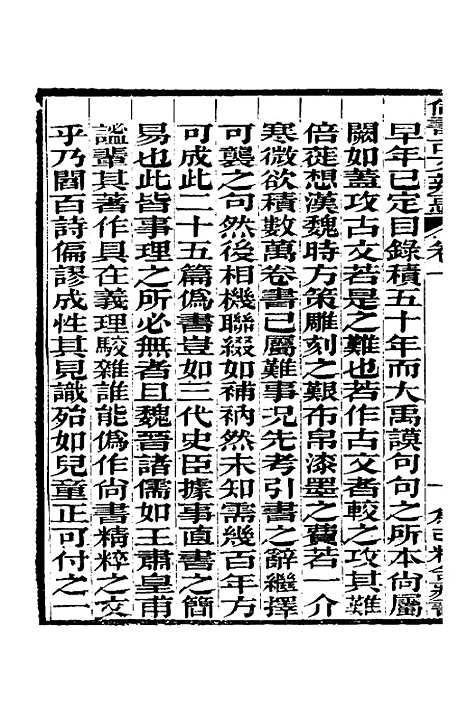 早年已定目錄積五十年而大禹謨句句之所本尙屬
闕如蓋攻古文若是之難也若作古文者較之攻其難
倍蓰想漢魏時方策雕刻之艱布帛漆墨之費若一介
寒微欲積數萬卷書已屬難事況先考引書之辭繼擇
可襲之句然後相機聯綴如補衲然未知需幾百年方
可成此二十五篇僞書豈如三代史臣據事直書之簡
易也此皆事理之所必無者且魏晉諸儒如王肅皇甫
謐輩其著作具在義理駁雜誰能僞作尙書精粹之文
乎乃閻百詩偏謬成性其見識殆如兒童正可付之一